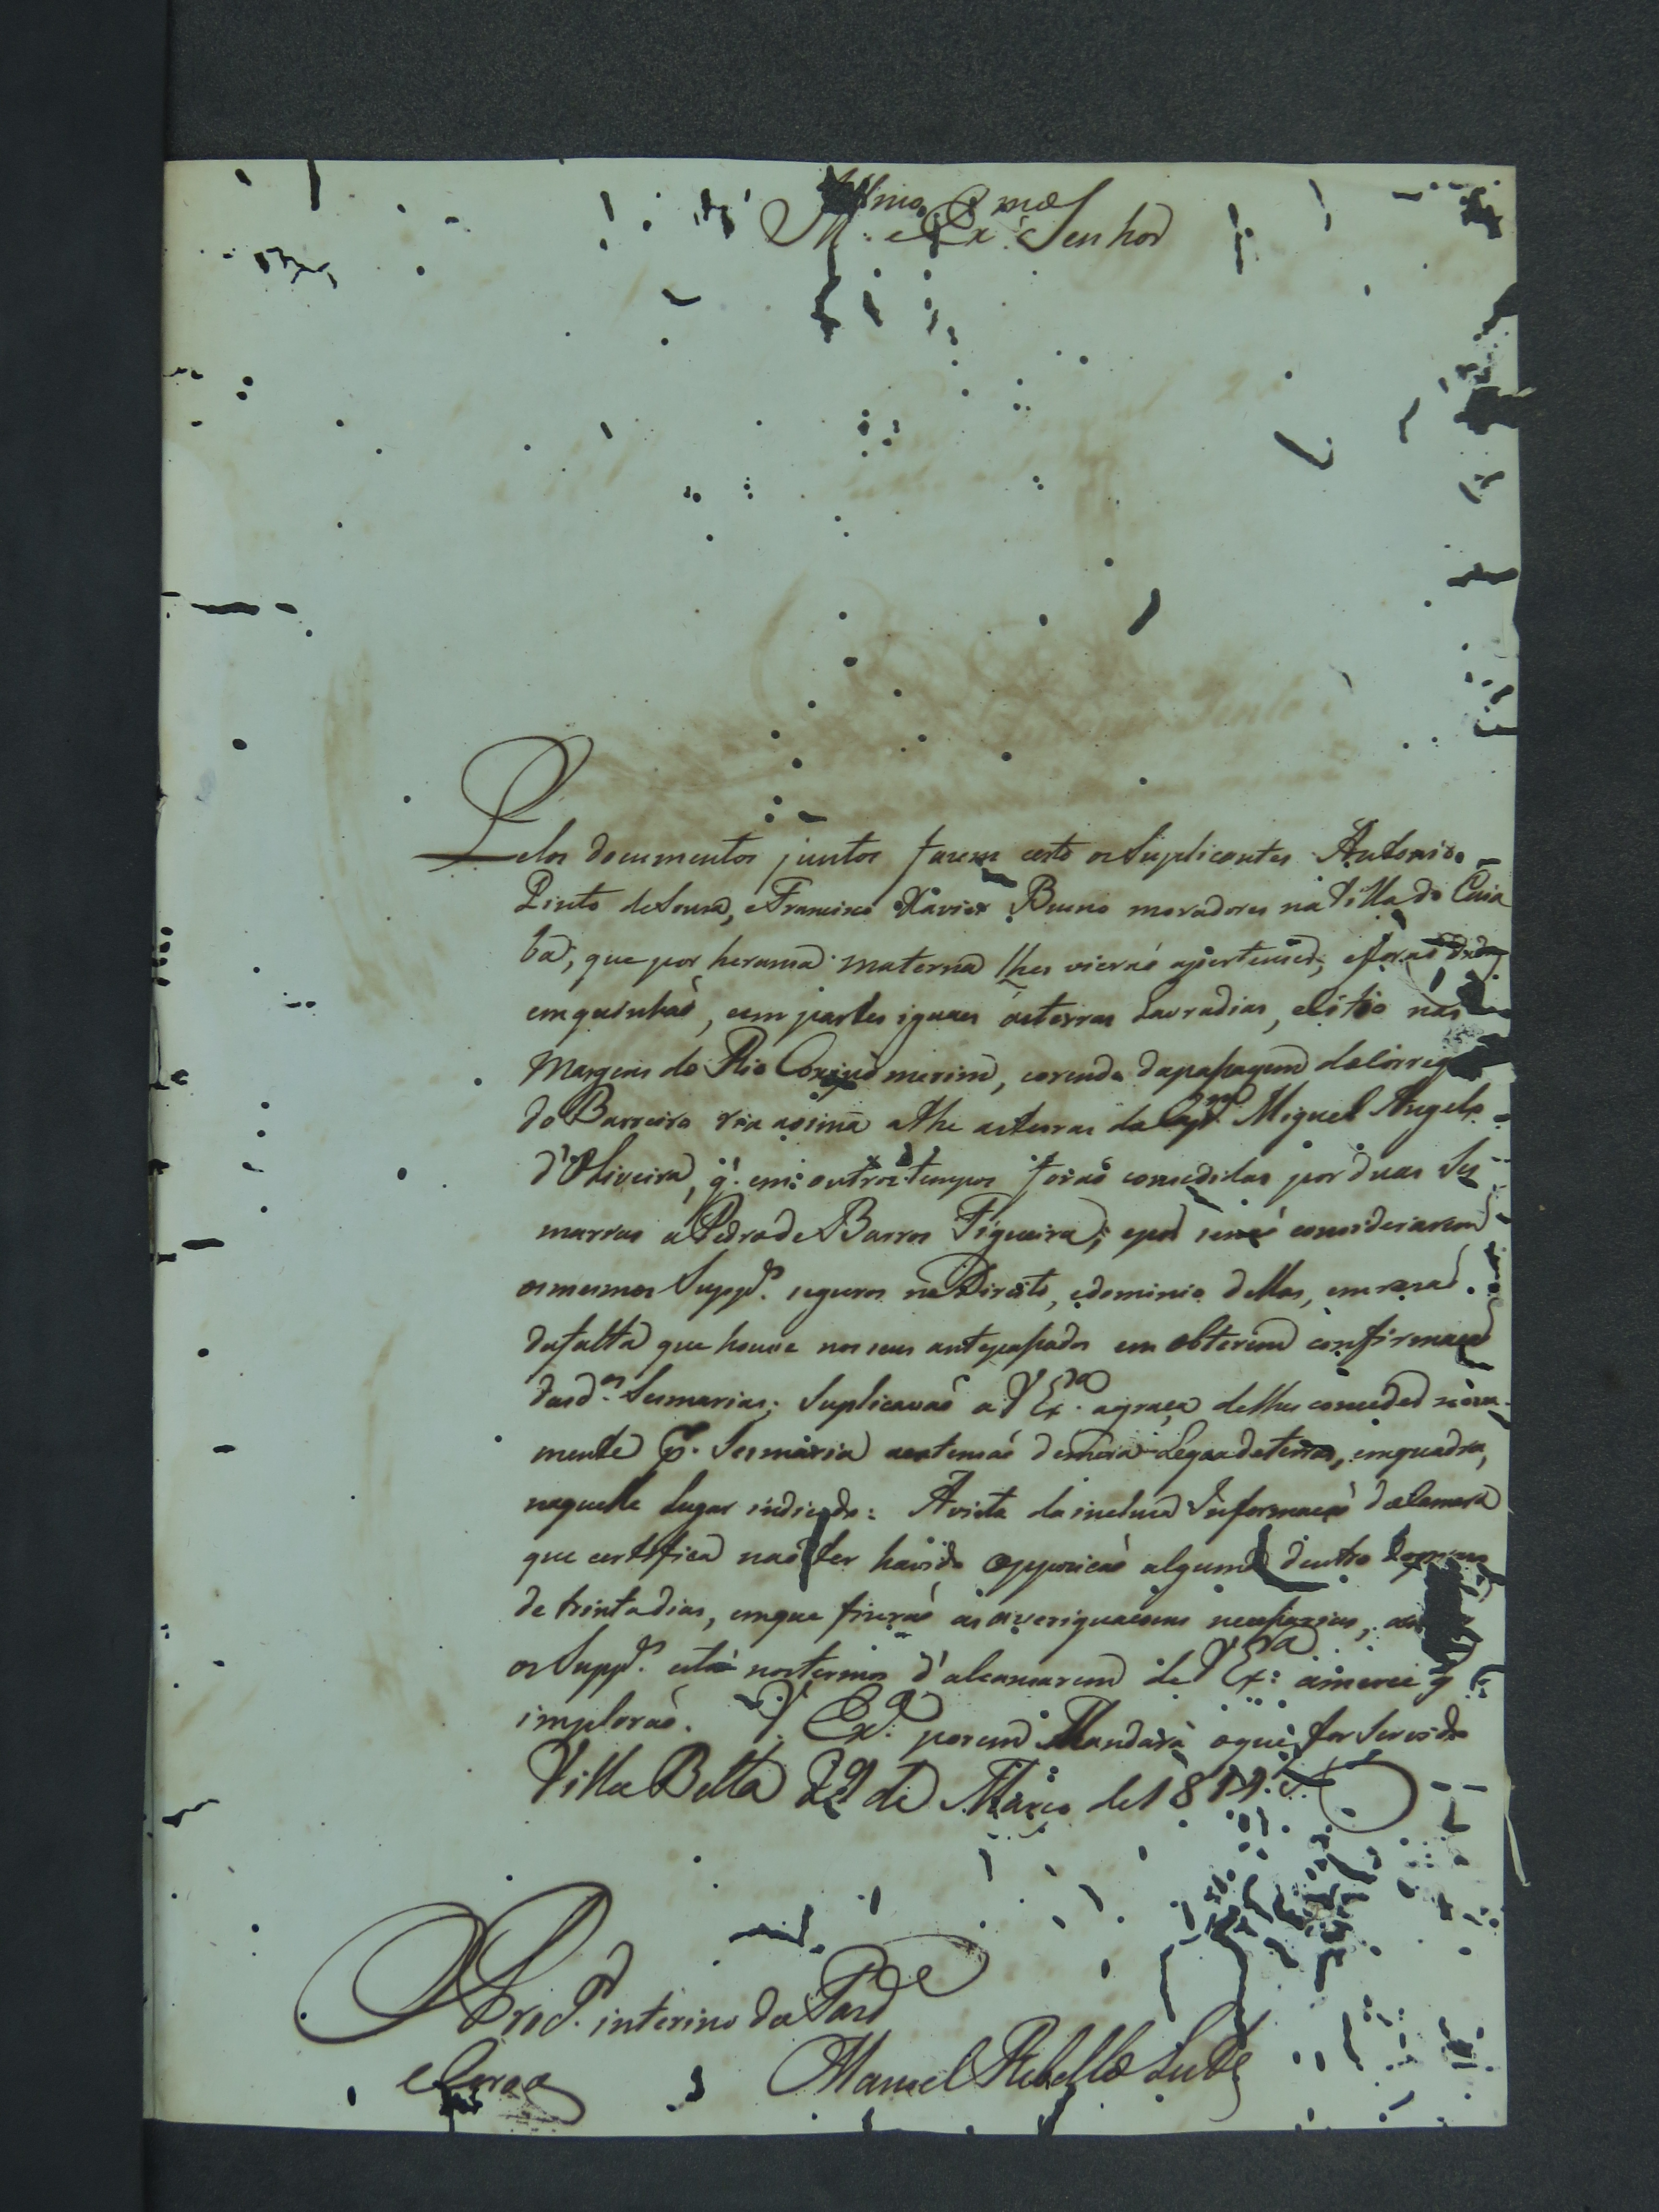 Ill.mo e Ex.mo Senhor
Pelos documentos juntos fazem certo os Suplicantes Antonio
Pinto de Souza, e Francisco Xavier Bueno moradores na Villa do Cuia
bá, que por heransa materna lhes vieraõ apertenser, e foraõ dados
em quinhaõ, e em partes iguaes as terras Lavradias, e Sitio nas
Margens do Rio Coxipó merim, corendo da pasagem do Córrego
do Barreiro ria asima athe as terras do Cap.m Miguel Angelo
d'Oliveira, q.' em outros tempos foraõ consedidas por duas Ses
marias a Pedro de Barros Figueira; e por se naõ considerarem
os mesmos Supp.es seguros no Direito, e dominio dellas, em rasaõ
da falta que houve nos seus antepasados em obterem confirmaçaõ
das d.as Sesmarias; Suplicavaõ a V Ex.cia a graça de lhes conceder nova-
mente p.r Sesmaria aextensaõ de meia Legoa de terras, em quadra,
naquelle Lugar indicado: A vista da inclusa Informaçaõ da Camera
que certifica naõ ter havido oppozicaõ alguma dentro
de trinta dias, em que fizeraõ as averiguacoens necesarias,
os Supp.es estaõ nos termos d'alcansarem de V Ex.cia a merce q
imploraõ. V. Ex.a porem Mandará o que for Servido
Villa Bella 22 de Março de 1814.
O Proc.or interino da Faz.da
e Coroa
Manoel Rebello Leite